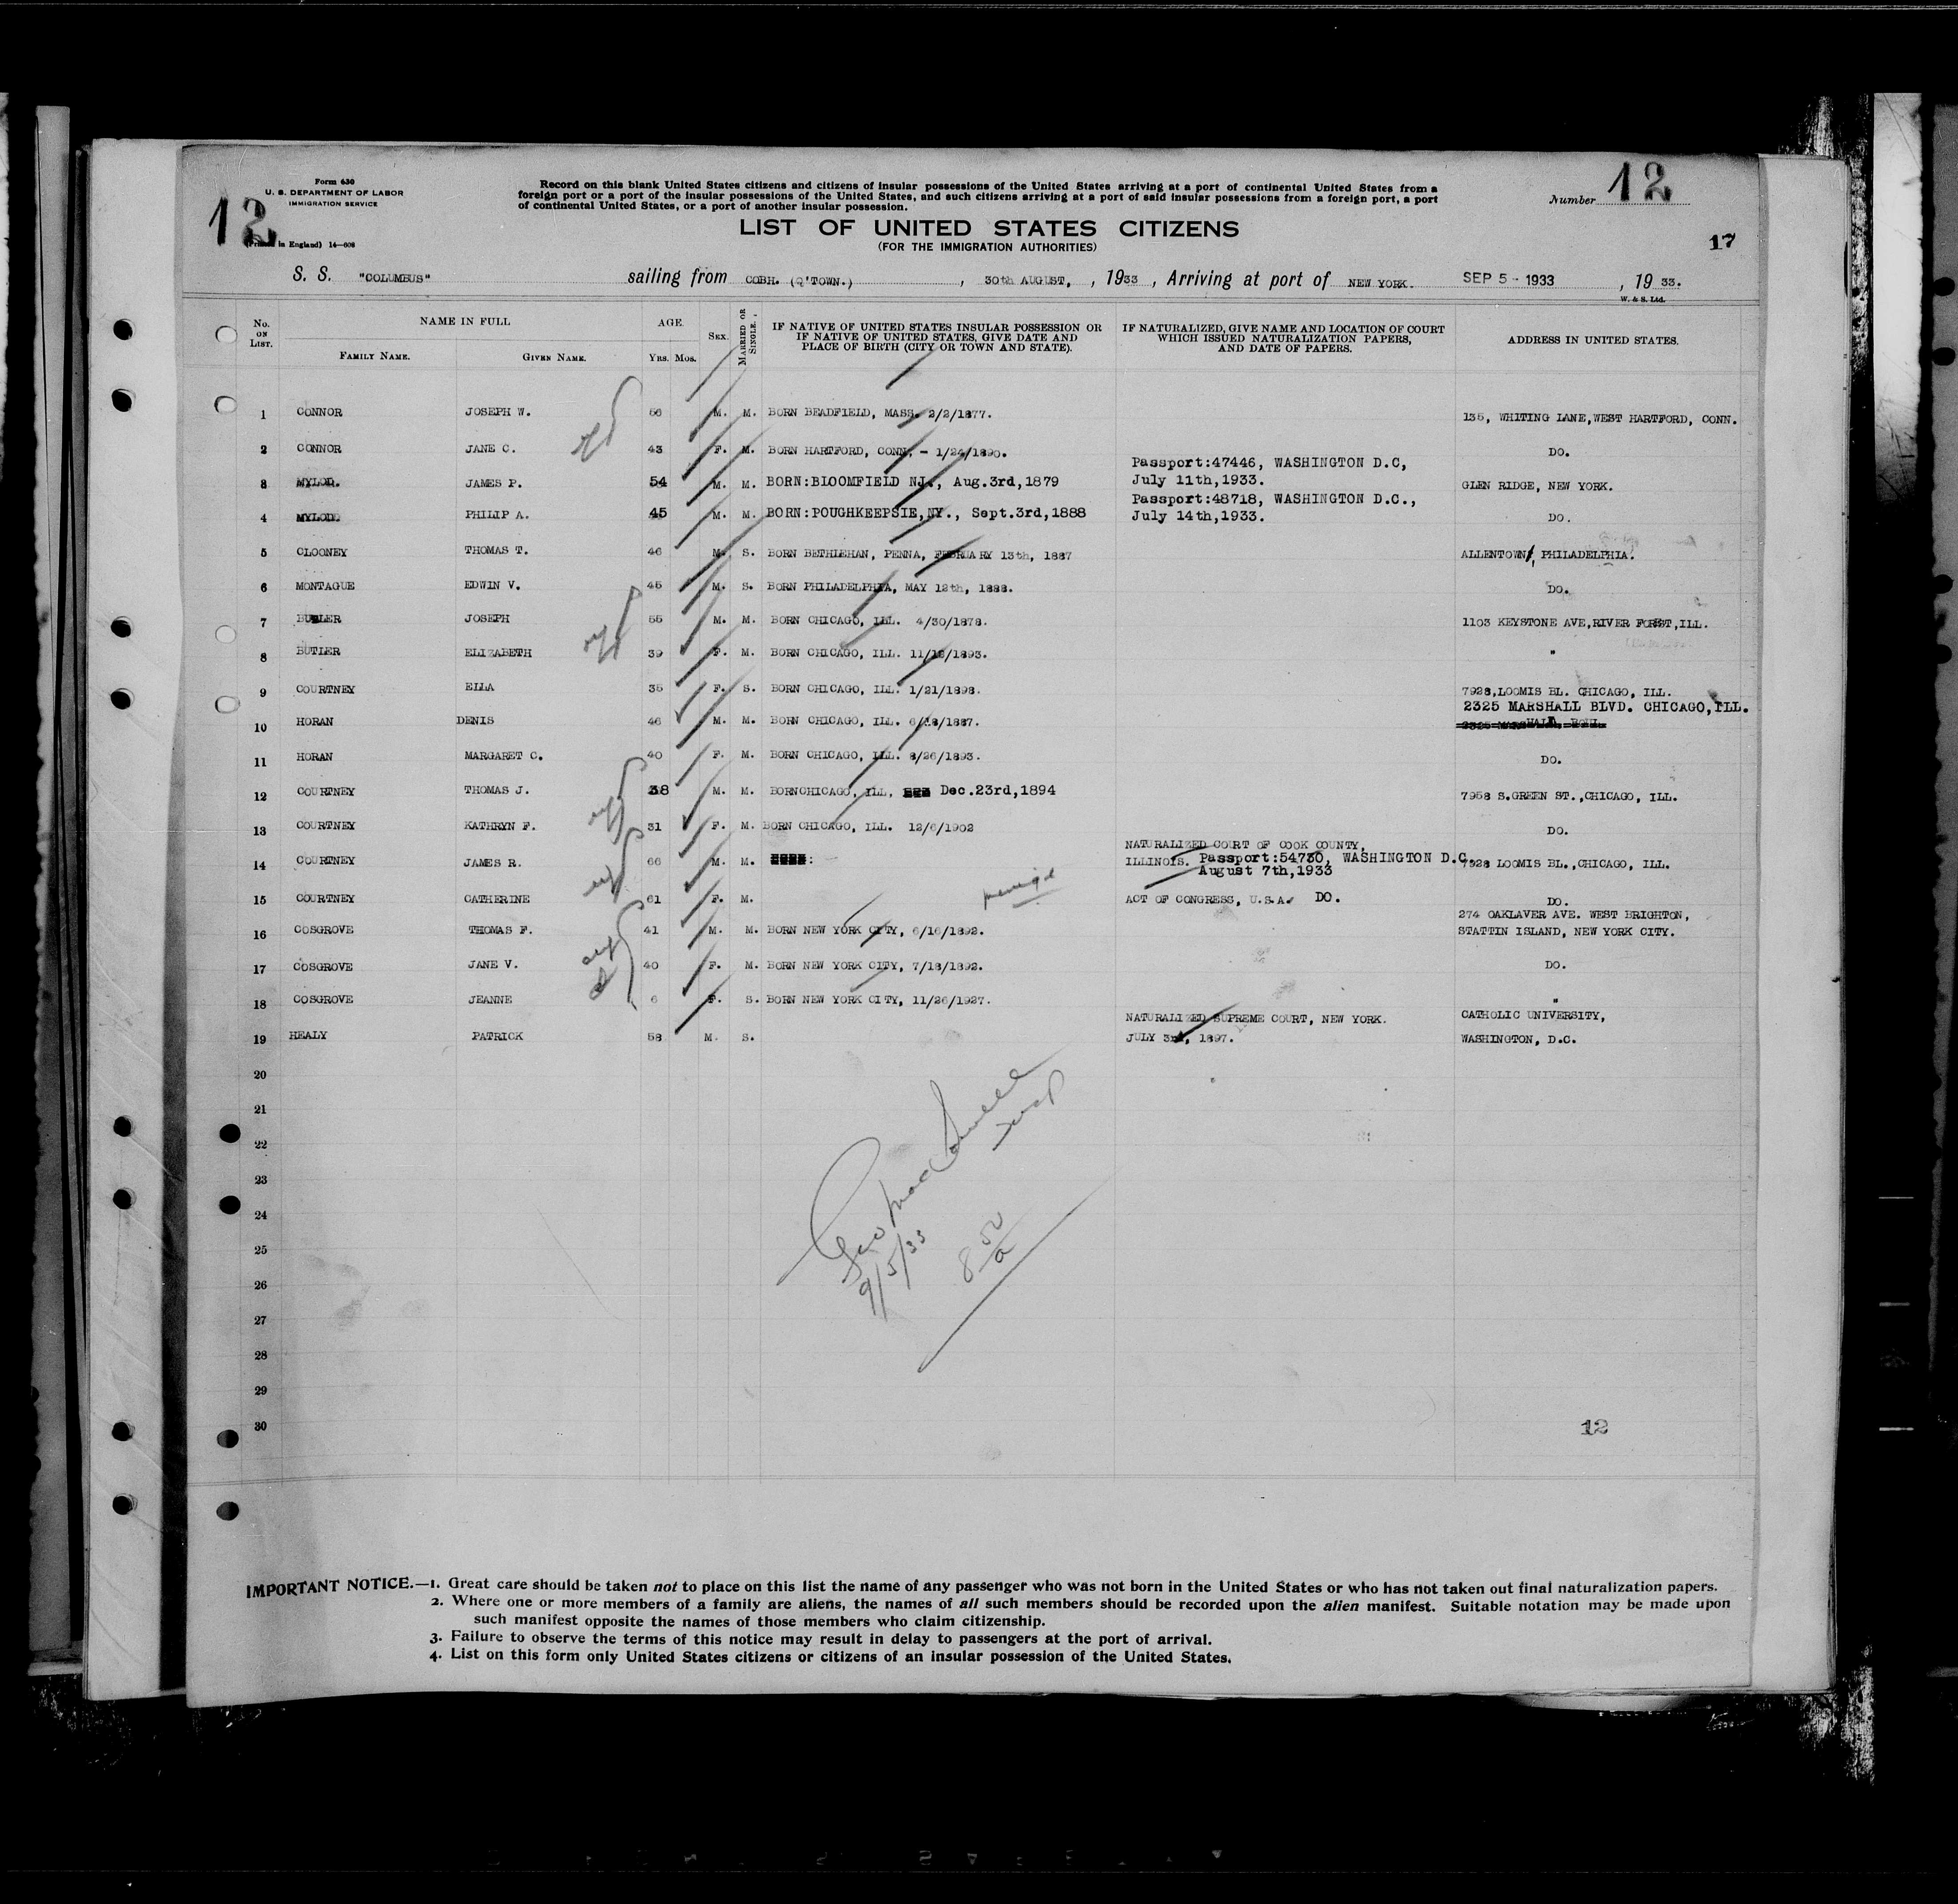 Form 630
U. S. DEPARTMENT OF LABOR
IMMIGRATION SERVICE
12
(Printed in England) 14—608
Record on this blank United States citizens and citizens of insular possessions of the United States arriving at a port of continental United States from a
foreign port or a port of the insular possessions of the United States, and such citizens arriving at a port of said insular possessions from a foreign port, a port
of continental United States, or a port of another insular possession.
Number 12
LIST OF UNITED STATES CITIZENS
(FOR THE IMMIGRATION AUTHORITIES)
17
S. S. "COLUMBUS" sailing from COBH. (Q'TOWN.) , 30th AUGUST, , 1933 , Arriving at port of NEW YORK. SEP 5 - 1933 , 19 33.
W. & S. Ltd.
No. ON LIST. NAME IN FULL FAMILY NAME. GIVEN NAME. AGE. YRS. MOS. SEX. MARRIED OR SINGLE. IF NATIVE OF UNITED STATES INSULAR POSSESSION OR IF NATIVE OF UNITED STATES, GIVE DATE AND PLACE OF BIRTH (CITY OR TOWN AND STATE). IF NATURALIZED, GIVE NAME AND LOCATION OF COURT WHICH ISSUED NATURALIZATION PAPERS, AND DATE OF PAPERS. ADDRESS IN UNITED STATES.
1 CONNOR JOSEPH W. 56 M. M. BORN BEADFIELD, MASS. 2/2/1877. 135, WHITING LANE,WEST HARTFORD, CONN.
2 CONNOR JANE C. 43 F. M. BORN HARTFORD, CONN. - 1/24/1890. DO.
3 MYLOD. JAMES P. 54 M. M. BORN:BLOOMFIELD NJ., Aug.3rd,1879 Passport:47446, WASHINGTON D.C, July 11th,1933. GLEN RIDGE, NEW YORK.
4 MYLOD. PHILIP A. 45 M. M. BORN:POUGHKEEPSIE,NY., Sept.3rd,1888 Passport:48718, WASHINGTON D.C., July 14th,1933. DO.
5 CLOONEY THOMAS T. 46 M. S. BORN BETHLEHAN, PENNA, FEBRUARY 13th, 1887 ALLENTOWN, PHILADELPHIA.
6 MONTAGUE EDWIN V. 45 M. S. BORN PHILADELPHIA, MAY 12th, 1888. DO.
7 BUTLER JOSEPH 55 M. M. BORN CHICAGO, ILL. 4/30/1878. 1103 KEYSTONE AVE,RIVER FOREST,ILL.
8 BUTLER ELIZABETH 39 F. M. BORN CHICAGO, ILL. 11/18/1893. "
9 COURTNEY ELLA 35 F. S. BORN CHICAGO, ILL. 1/21/1898. 7928,LOOMIS BL. CHICAGO, ILL.
10 HORAN DENIS 46 M. M. BORN CHICAGO, ILL. 6/18/1887. 2325 MARSHALL BLVD. CHICAGO,ILL.
11 HORAN MARGARET C. 40 F. M. BORN CHICAGO, ILL. 8/26/1893. DO.
12 COURTNEY THOMAS J. 38 M. M. BORNCHICAGO, ILL, Dec.23rd,1894 7958 S.GREEN ST.,CHICAGO, ILL.
13 COURTNEY KATHRYN F. 31 F. M. BORN CHICAGO, ILL. 12/6/1902 DO.
14 COURTNEY JAMES R. 66 M. M. NATURALIZED COURT OF COOK COUNTY, ILLINOIS. Passport:54730, WASHINGTON D.C August 7th,1933 7928 LOOMIS BL.,CHICAGO, ILL.
15 COURTNEY CATHERINE 61 F. M. ACT OF CONGRESS, U.S.A. DO. DO.
16 COSGROVE THOMAS F. 41 M. M. BORN NEW YORK CITY, 6/16/1892. 274 OAKLAVER AVE. WEST BRIGHTON, STATTIN ISLAND, NEW YORK CITY.
17 COSGROVE JANE V. 40 F. M. BORN NEW YORK CITY, 7/18/1892. DO.
18 COSGROVE JEANNE 6 F. S. BORN NEW YORK CITY, 11/26/1927. "
19 HEALY PATRICK 58 M. S. NATURALIZED SUPREME COURT, NEW YORK. JULY 3rd, 1897. CATHOLIC UNIVERSITY, WASHINGTON, D.C.
20
21
22
23
24
25
26
27
28
29
30
9/5/33
12
IMPORTANT NOTICE.—1. Great care should be taken not to place on this list the name of any passenger who was not born in the United States or who has not taken out final naturalization papers.
2. Where one or more members of a family are aliens, the names of all such members should be recorded upon the alien manifest. Suitable notation may be made upon
such manifest opposite the names of those members who claim citizenship.
3. Failure to observe the terms of this notice may result in delay to passengers at the port of arrival.
4. List on this form only United States citizens or citizens of an insular possession of the United States.